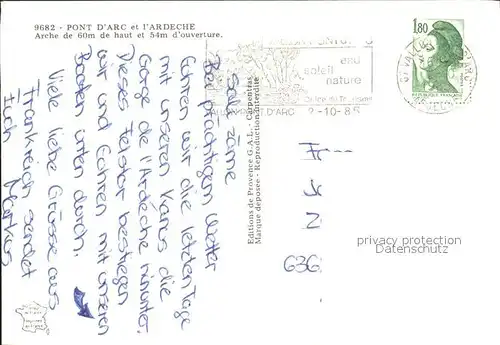 9682 - PONT D'ARC et l'ARDECHE
Arche de 60m de haut et 54m d'ouverture.
Salü zäme
Bei prächtigem Wetter
fuhren wir die letzten Tage
mit unseren Kanus die
Gorge de l'Ardèche hinunter.
Dieses Felstor bestiegen
wir und fuhren mit unseren
Booten unten durch.
Viele liebe Grüsse aus
Frankreich sendet
Euch Markus
Editions de Provence G.A.L. - Carpentras
Marque déposée - Reproduction interdite
eau
soleil
nature
Office du Tourisme
VALLON PONT D'ARC
2-10-85
1,80
Fr
636
privacy protection
Datenschutz